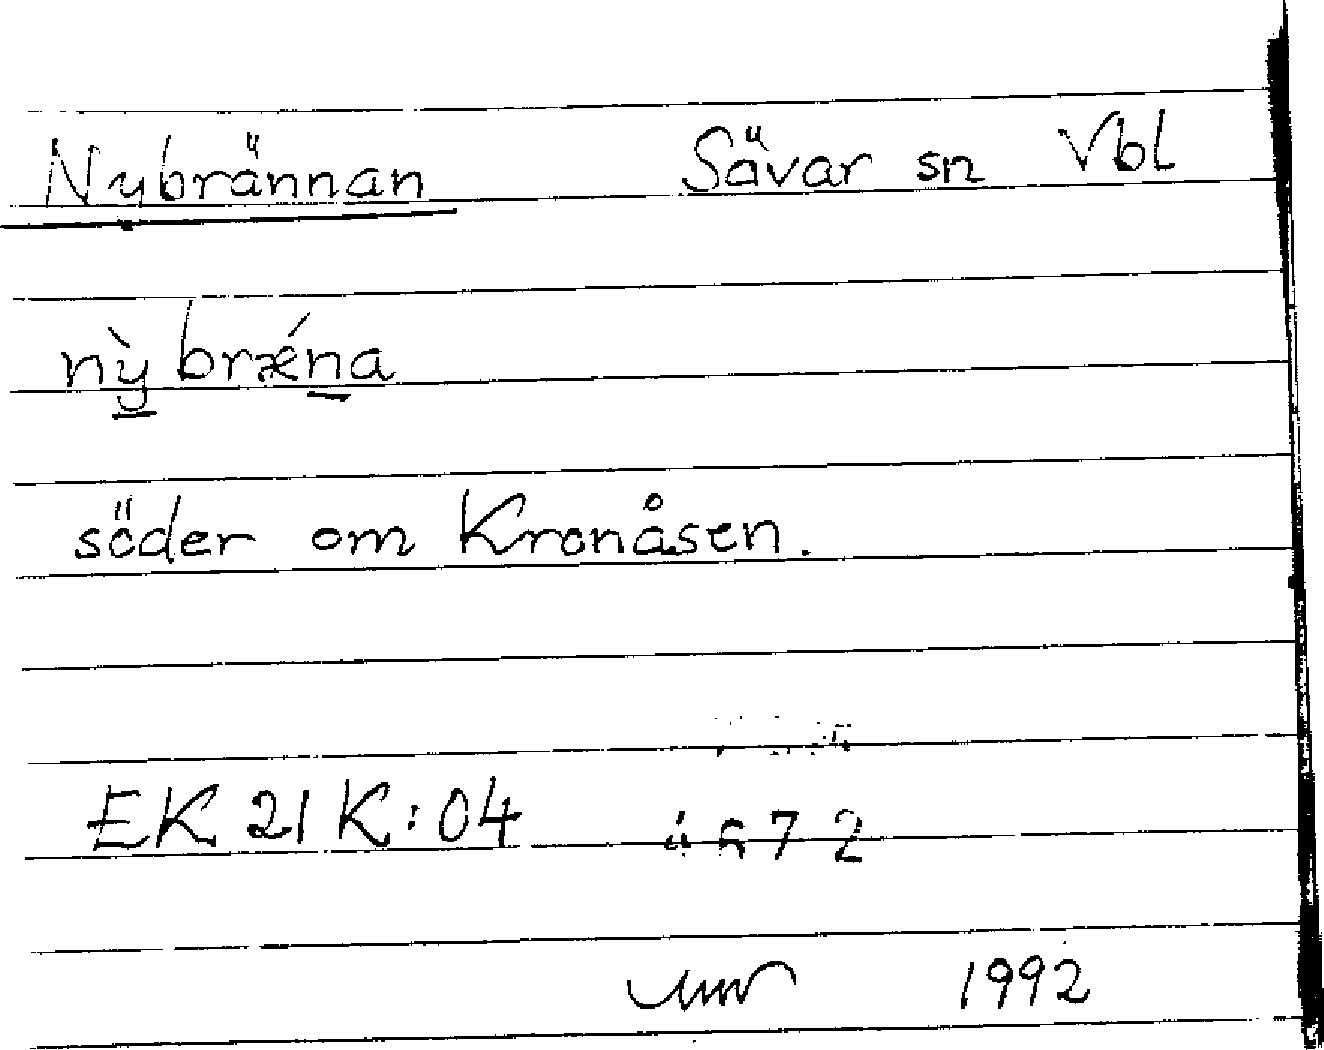 Nybrännan Sävar sn Vbl
nỳ brǽna
söder om Kronåsen.
EK 21 K:04
1992